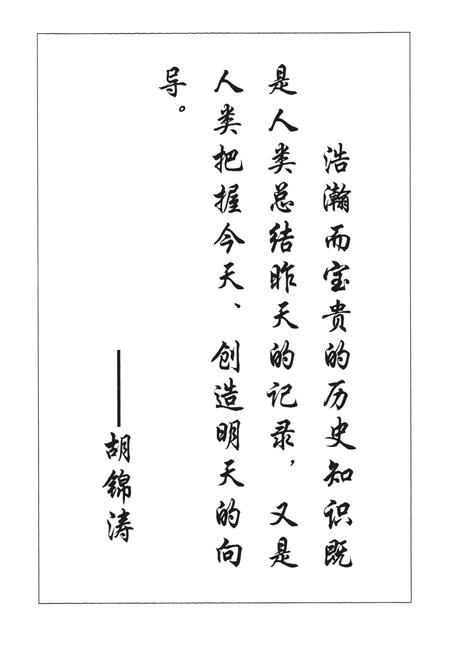 浩瀚而宝贵的历史知识既
是人类总结昨天的记录，又是
人类把握今天、创造明天的向
导。
——胡锦涛